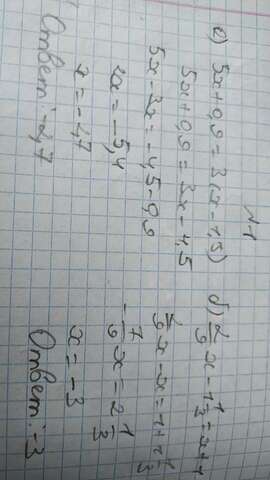 №1
а) 5x+0,9=3(x-1,5)
5x+0,9=3x-4,5
5x-3x=-4,5-0,9
2x=-5,4
x=-2,7
Ответ: -2,7
б) 2/9 x - 1 1/3 = x+1
2/9 x - x = 1+1 1/3
-7/9 x = 2 1/3
x=-3
Ответ: -3